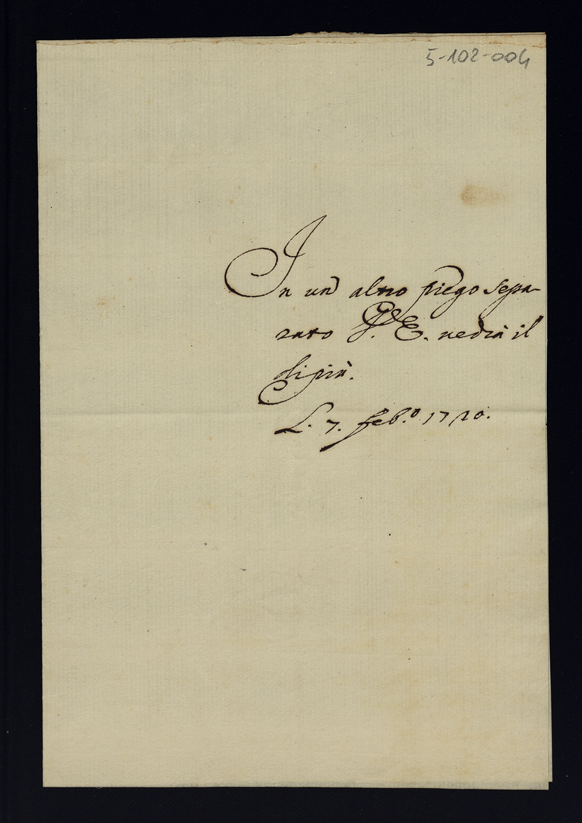 5-102-004
In un altro piego sepa-
rato V. E. vedrà il
di più.
L. 7. feb.º 1720.